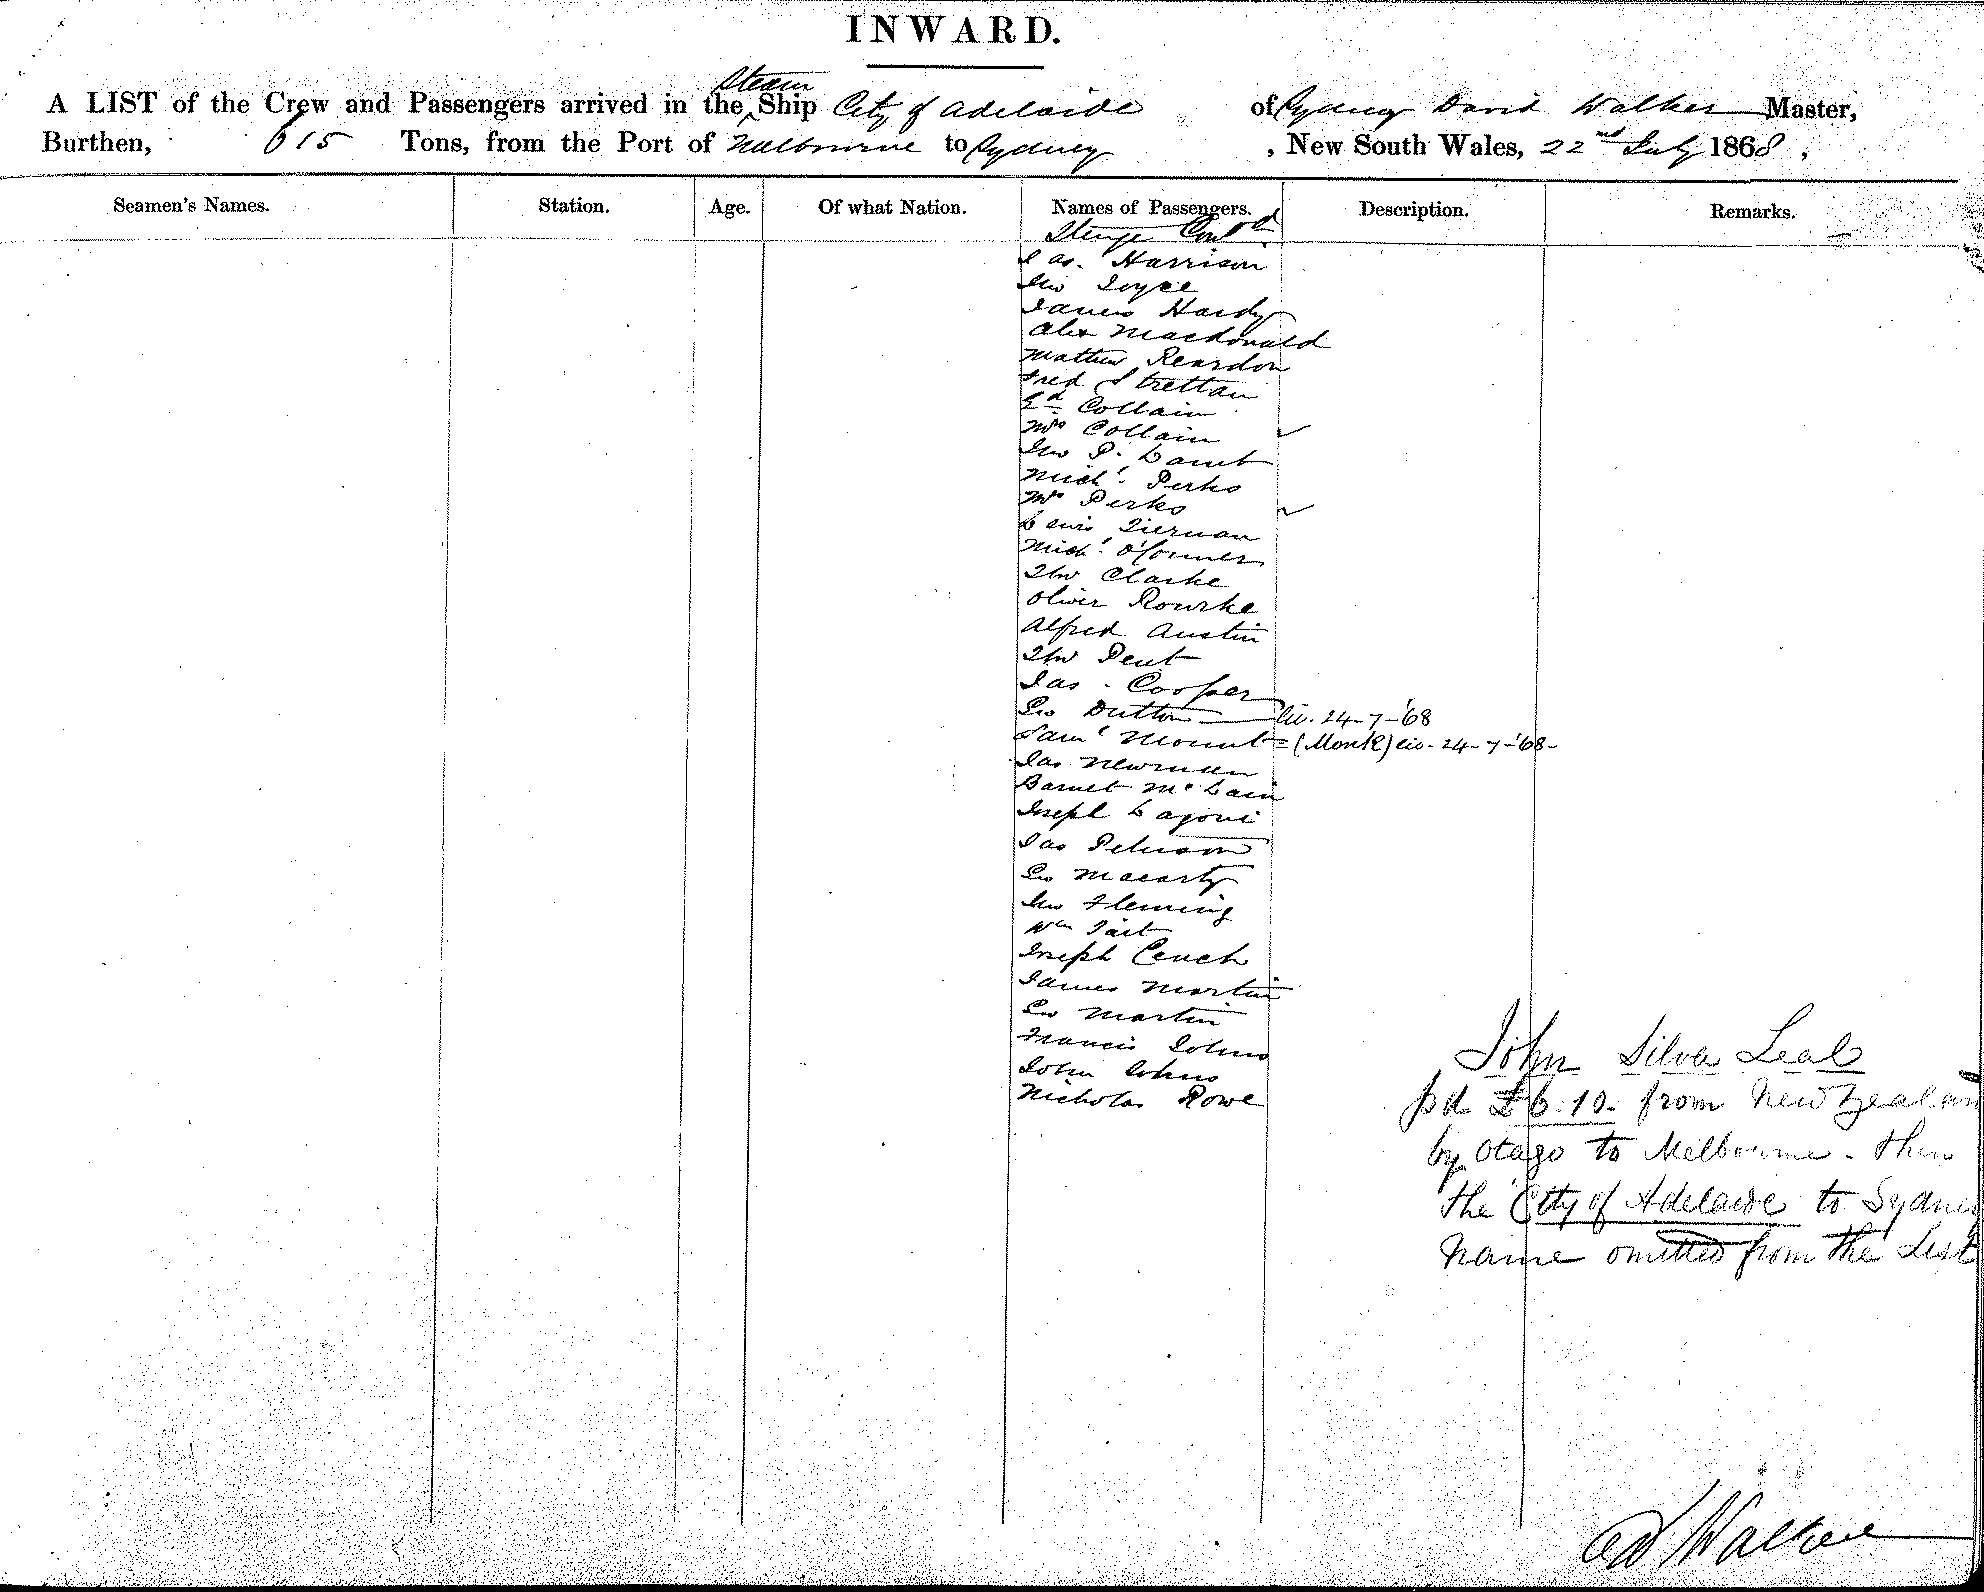 INWARD.
Steam
A LIST of the Crew and Passengers arrived in the Ship City of Adelaide of Sydney David Walker Master,
Burthen, 615 Tons, from the Port of Melbourne to Sydney, New South Wales, 22nd July 1868,
Seamen's Names. Station. Age. Of what Nation. Names of Passengers. Description. Remarks.
Jas. Harrison
Jno Joyce
James Hardy
Alex Macdonald
Mathew Reardon
Fred Strettan
Ed Collain
Mrs Collain
Jno P. Lamb
Michl. Perks
Mrs Perks
Lewis Tiernan
Michl. O'Conner
Clarke
Oliver Rourke
Alfred Austin
Pent
Jas. Cooper
Geo Dutton liv. 24-7-'68
Saml Mount = (Monk) liv. 24-7-'68-
Jas Newman
Barnet Mc
Joseph
Jas Peterson
Geo Macarty
Jno Fleming
Wm Tait
Joseph Couch
James Martin
Geo Martin
Francis Johns
John Johns
Nicholas Rowe
John Silva Leal
pd £6.10. from New Zealan
by Otago to Melbourne - then
the City of Adelaide to Sydney
Name omitted from the List
D Walker